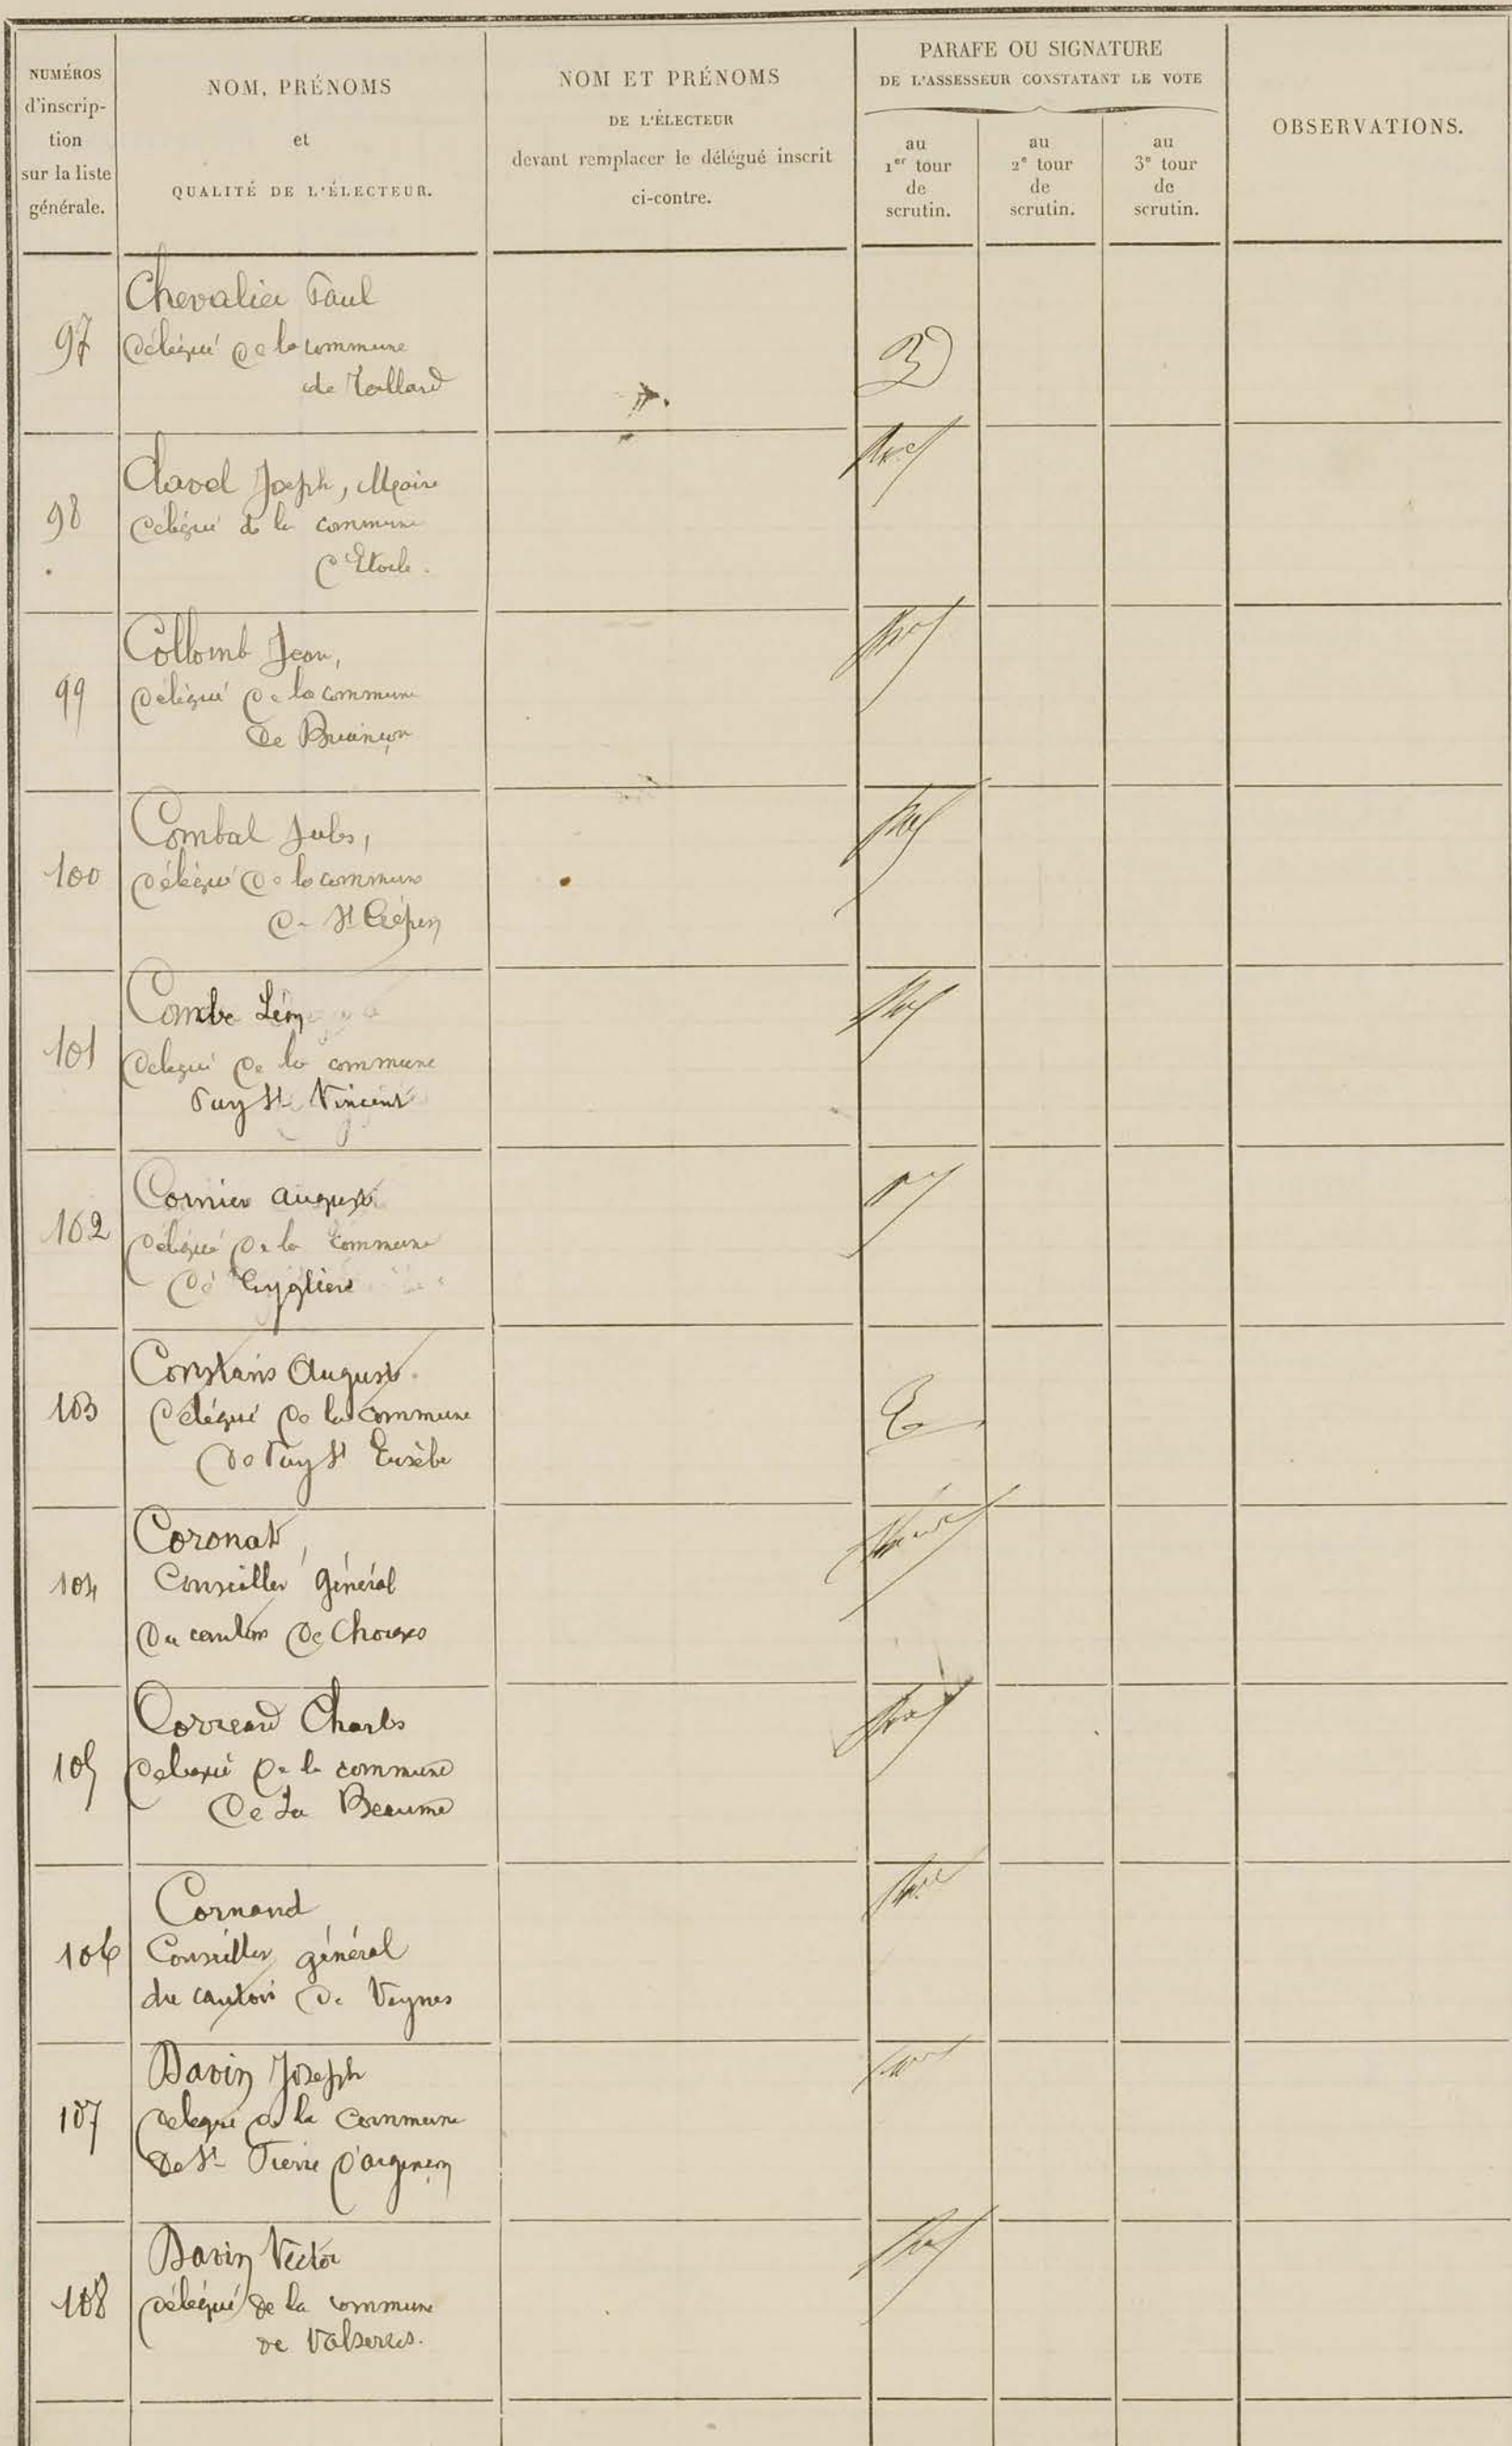 NUMÉROS
d'inscrip-
tion
sur la liste
générale.
NOM, PRÉNOMS
et
QUALITÉ DE L'ÉLECTEUR.
NOM ET PRÉNOMS
DE L'ÉLECTEUR
devant remplacer le délégué inscrit
ci-contre.
PARAFE OU SIGNATURE
DE L'ASSESSEUR CONSTATANT LE VOTE
au
1er tour
de
scrutin.
au
2e tour
de
scrutin.
au
3e tour
de
scrutin.
OBSERVATIONS.
97
Chevalier Paul
délégué de la commune
de Tallard
98
Clavel Joseph, Maire
délégué de la commune
d'Etoile.
99
Collomb Jean,
délégué de la commune
de Briançon
100
Combal Jules,
délégué de la commune
de St Crépin
101
Combe Léon
délégué de la commune
Puy St Vincent
102
Cornier August
délégué de la commune
d'Eygliers
103
Constans August
délégué de la commune
de Puy St Eusèbe
104
Coronat,
Conseiller Général
du canton de Chorges
105
Correard Charles
délégué de la commune
de La Beaume
106
Cornand
Conseiller général
du canton de Veynes
107
Davin Joseph
délégué de la Commune
de St Pierre d'argençon
108
Davin Victor
délégué de la commune
de Valserres.